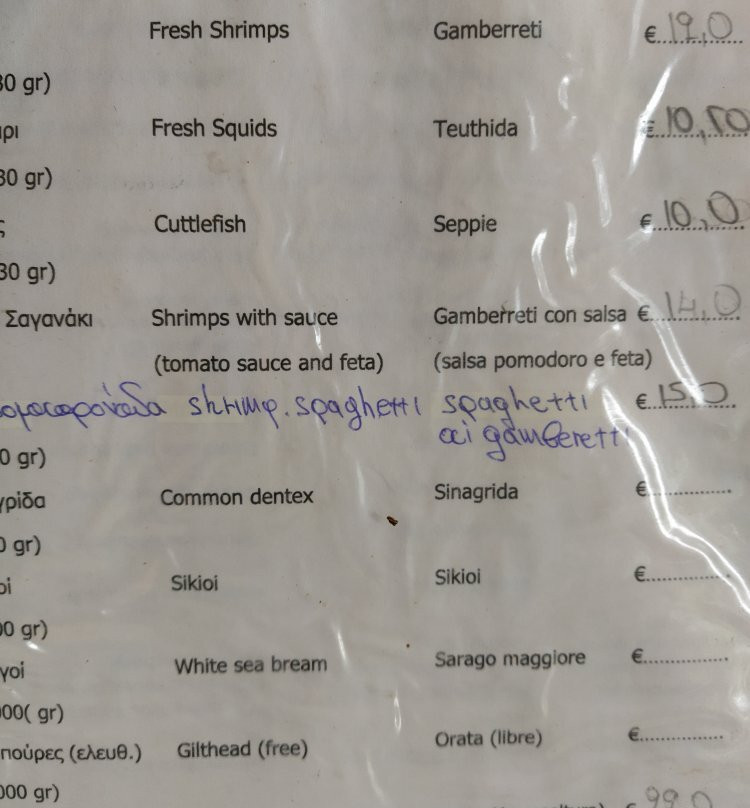 Fresh Shrimps Gamberreti €12,0
30 gr)
άρι Fresh Squids Teuthida €10,50
30 gr)
ς Cuttlefish Seppie €10,0
30 gr)
Σαγανάκι Shrimps with sauce Gamberreti con salsa €14,0
(tomato sauce and feta) (salsa pomodoro e feta)
shrimp.spaghetti spaghetti €15,0
ai gamberetti
0 gr)
γρίδα Common dentex Sinagrida €
0 gr)
οί Sikioi Sikioi €
00 gr)
γοί White sea bream Sarago maggiore €
000( gr)
πούρες (ελευθ.) Gilthead (free) Orata (libre) €
000 gr)